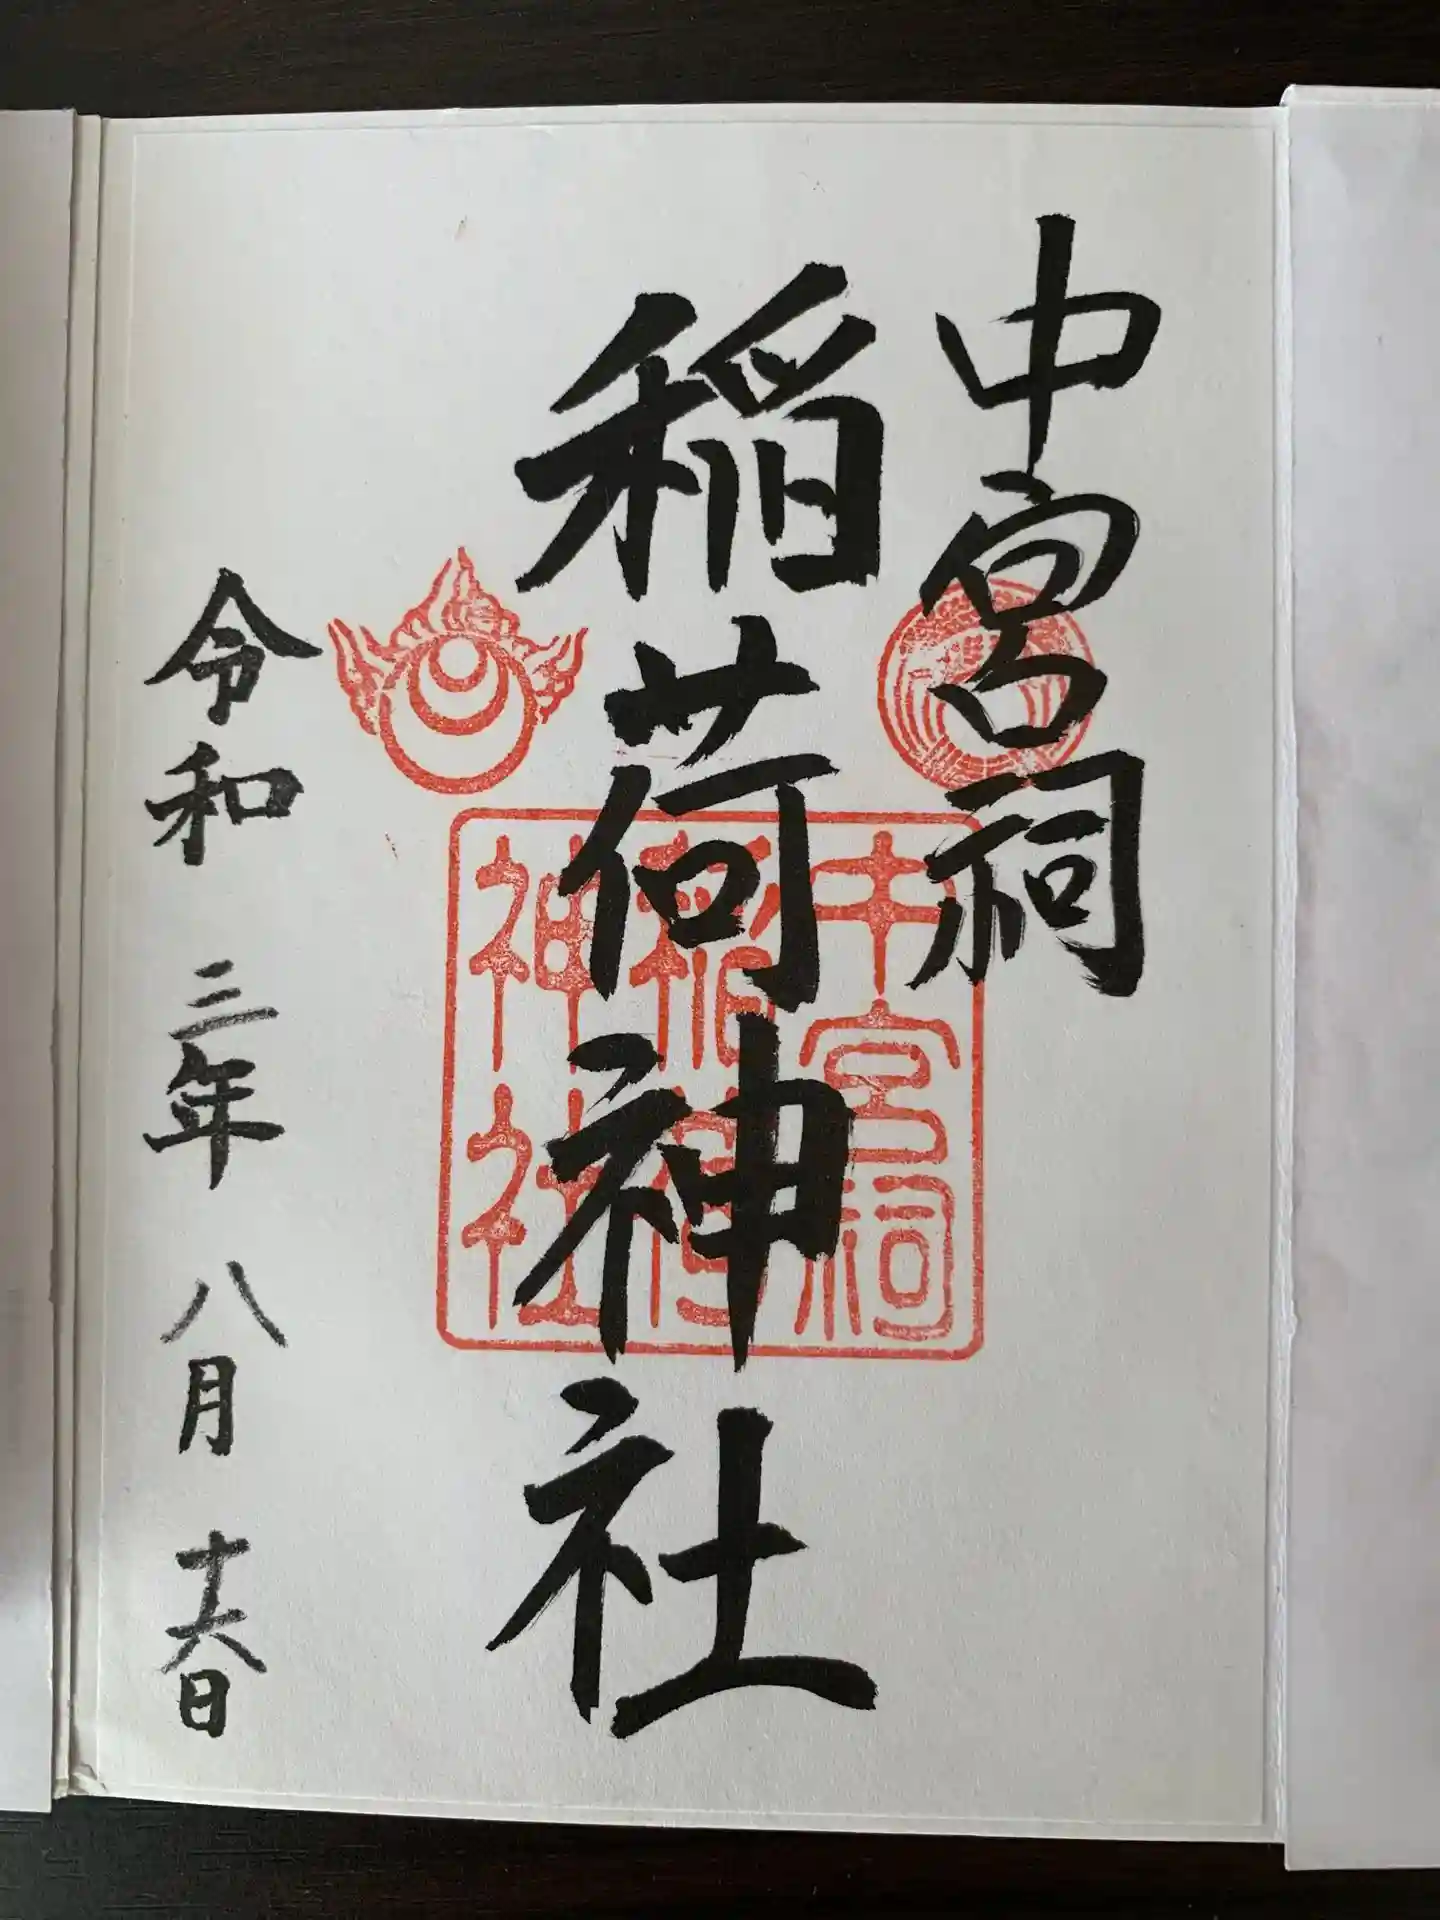 中宮祠
稲荷神社
中宮祠
稲荷
神社
令和三年八月十六日